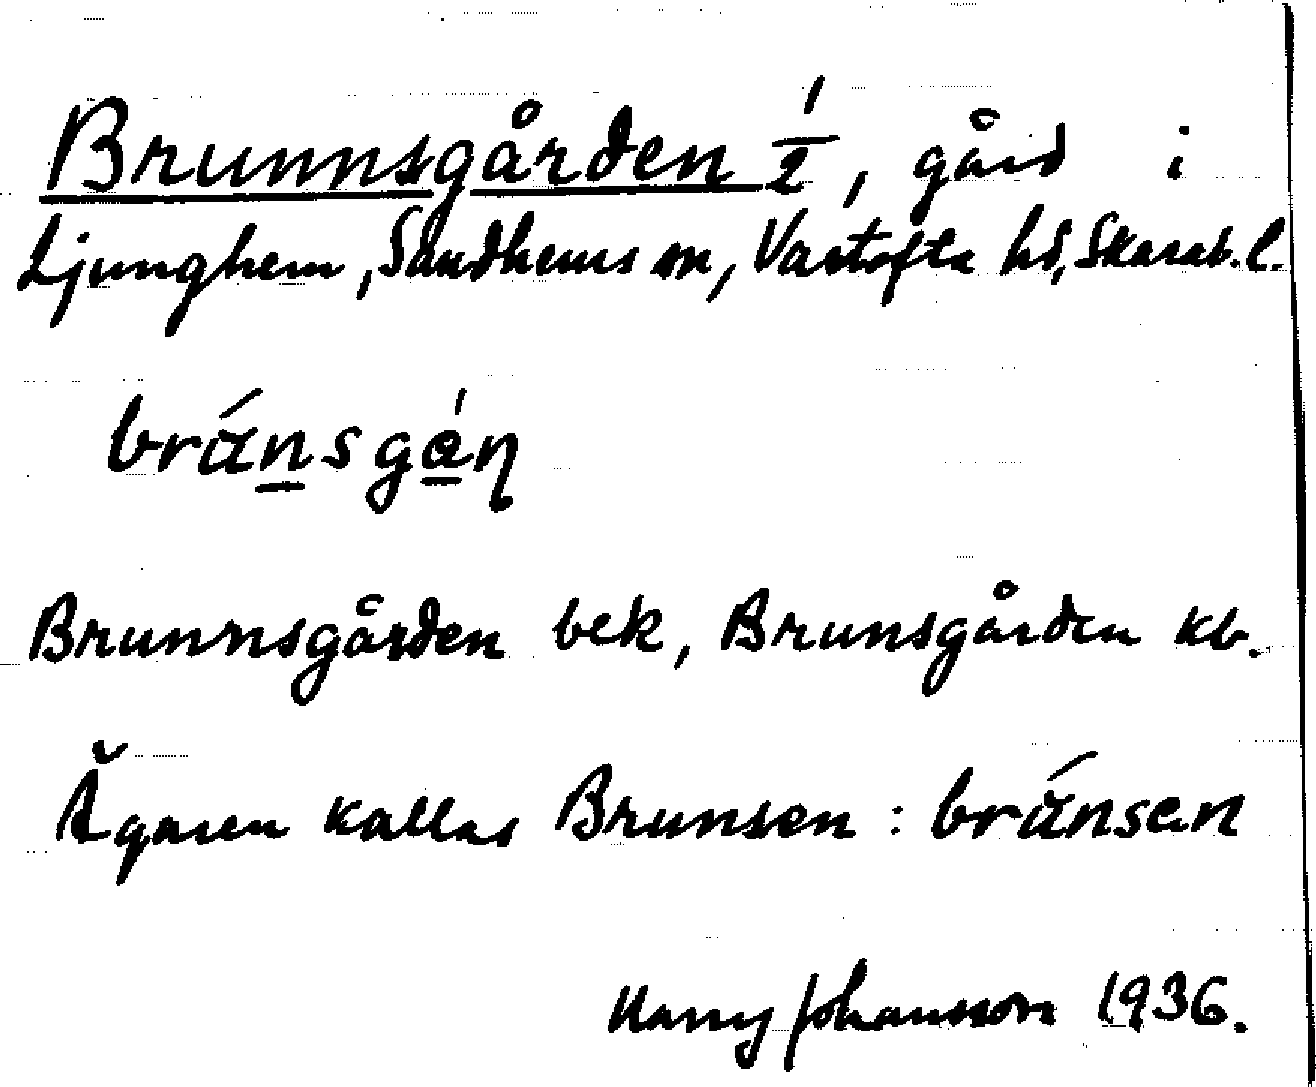 Brunnsgården 1/2, gård i
Ljunghem, Sandhems sn, Vartofta hd, Skarab. l.
bránsgán
Brunnsgården bek, Brunsgården kb.
Ägaren kallas Brunsen : bránsen
Harry Johansson 1936.